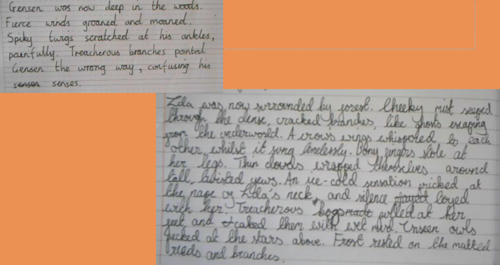 Gensen was now deep in the woods.
Fierce winds groaned and moaned.
Spiky twigs scratched at his ankles,
painfully. Treacherous branches pointed
Gensen the wrong way, confusing his
senses.
Zelda was now surrounded by forest. Cheeky mist seeped
through the dense, cracked branches, like ghosts escaping
from the underworld. A crows wings whispered to each
other, whilst it sung endlessly. Bony fingers stole at
her legs. Thin clouds wrapped themselves around
tall, twisted yews. An ice-cold sensation pricked at
the nape of Zelda's neck, and silence toyed
with her. Treacherous bogs pulled at her
feet and caked them with wet mud. Unseen owls
pecked at the stars above. Frost rested on the matted
reeds and branches.